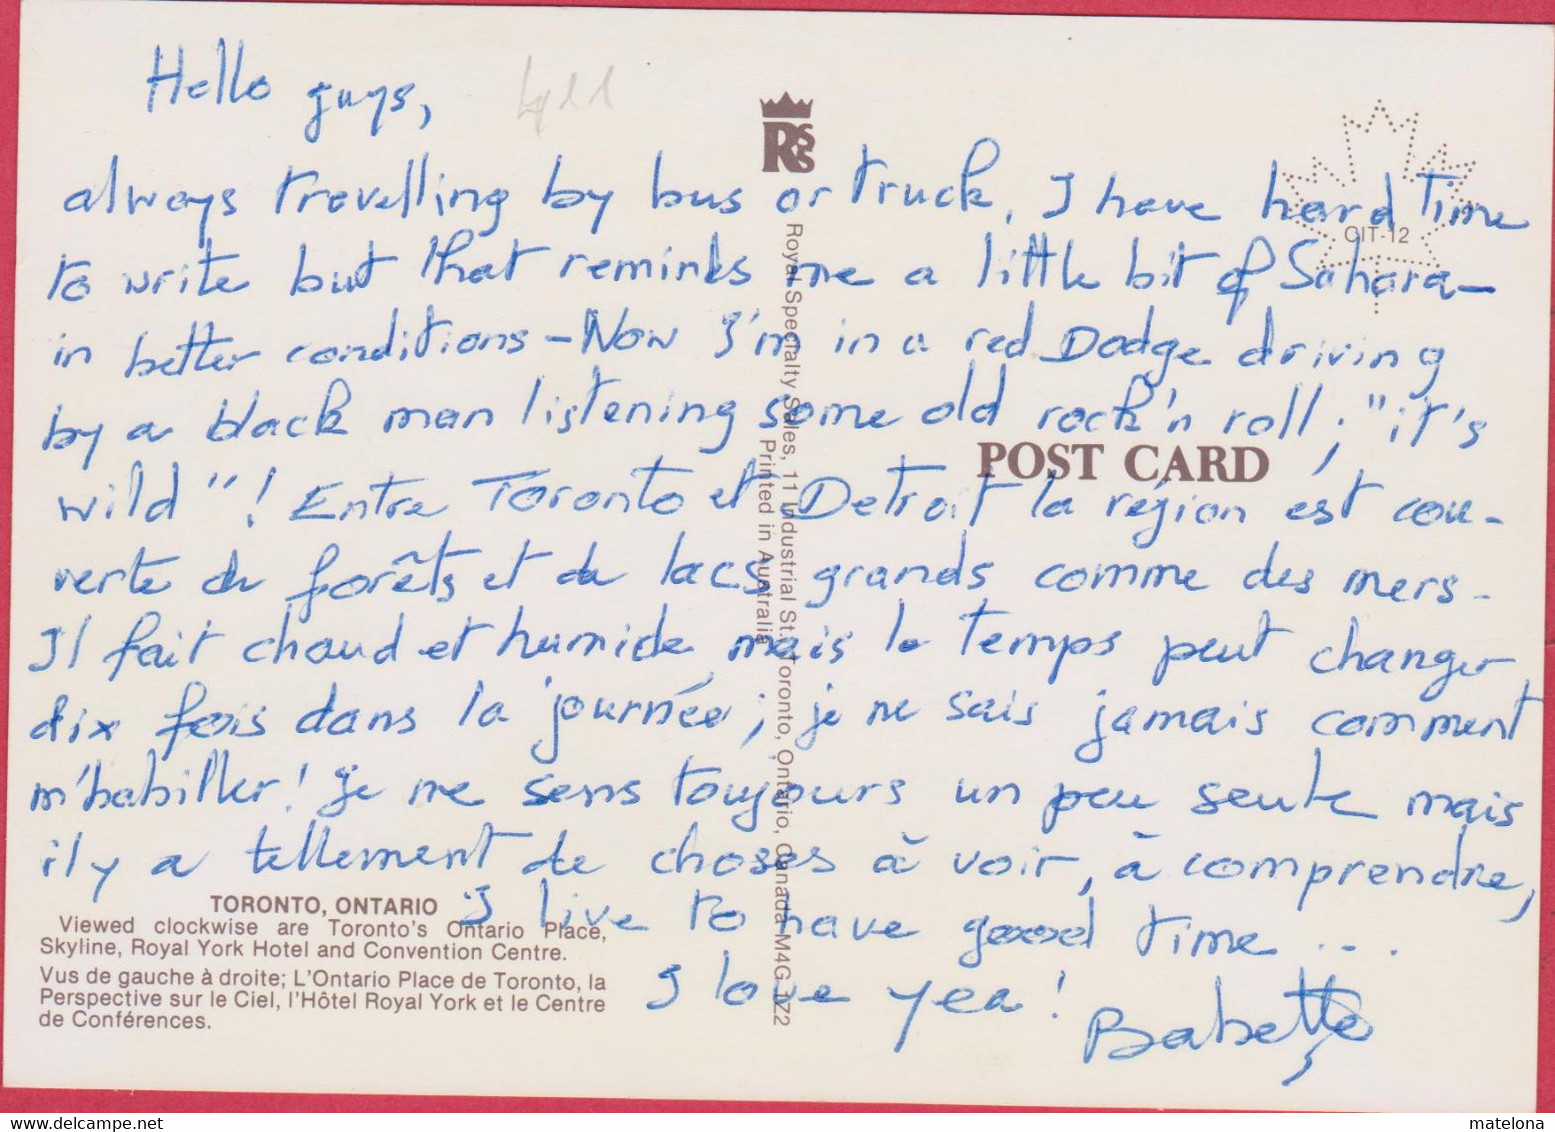 Hello guys,
always travelling by bus or truck, I have hard time
to write but that reminds me a little bit of Sahara -
in better conditions - Now I'm in a red Dodge driving
by a black man listening some old rock'n roll; "it's
wild"! Entre Toronto et Detroit la région est cou-
verte de forêts et de lacs grands comme des mers -
Il fait chaud et humide mais le temps peut changer
dix fois dans la journée; je ne sais jamais comment
m'habiller! Je me sens toujours un peu seule mais
il y a tellement de choses à voir, à comprendre,
I live to have good time ...
I love yea!
Babette
RSS
CIT-12
POST CARD
Royal Specialty Sales, 11 Industrial St., Toronto, Ontario, Canada M4G 1Z2
Printed in Australia
TORONTO, ONTARIO
Viewed clockwise are Toronto's Ontario Place,
Skyline, Royal York Hotel and Convention Centre.
Vus de gauche à droite; L'Ontario Place de Toronto, la
Perspective sur le Ciel, l'Hôtel Royal York et le Centre
de Conférences.
delcampe.net
matelona